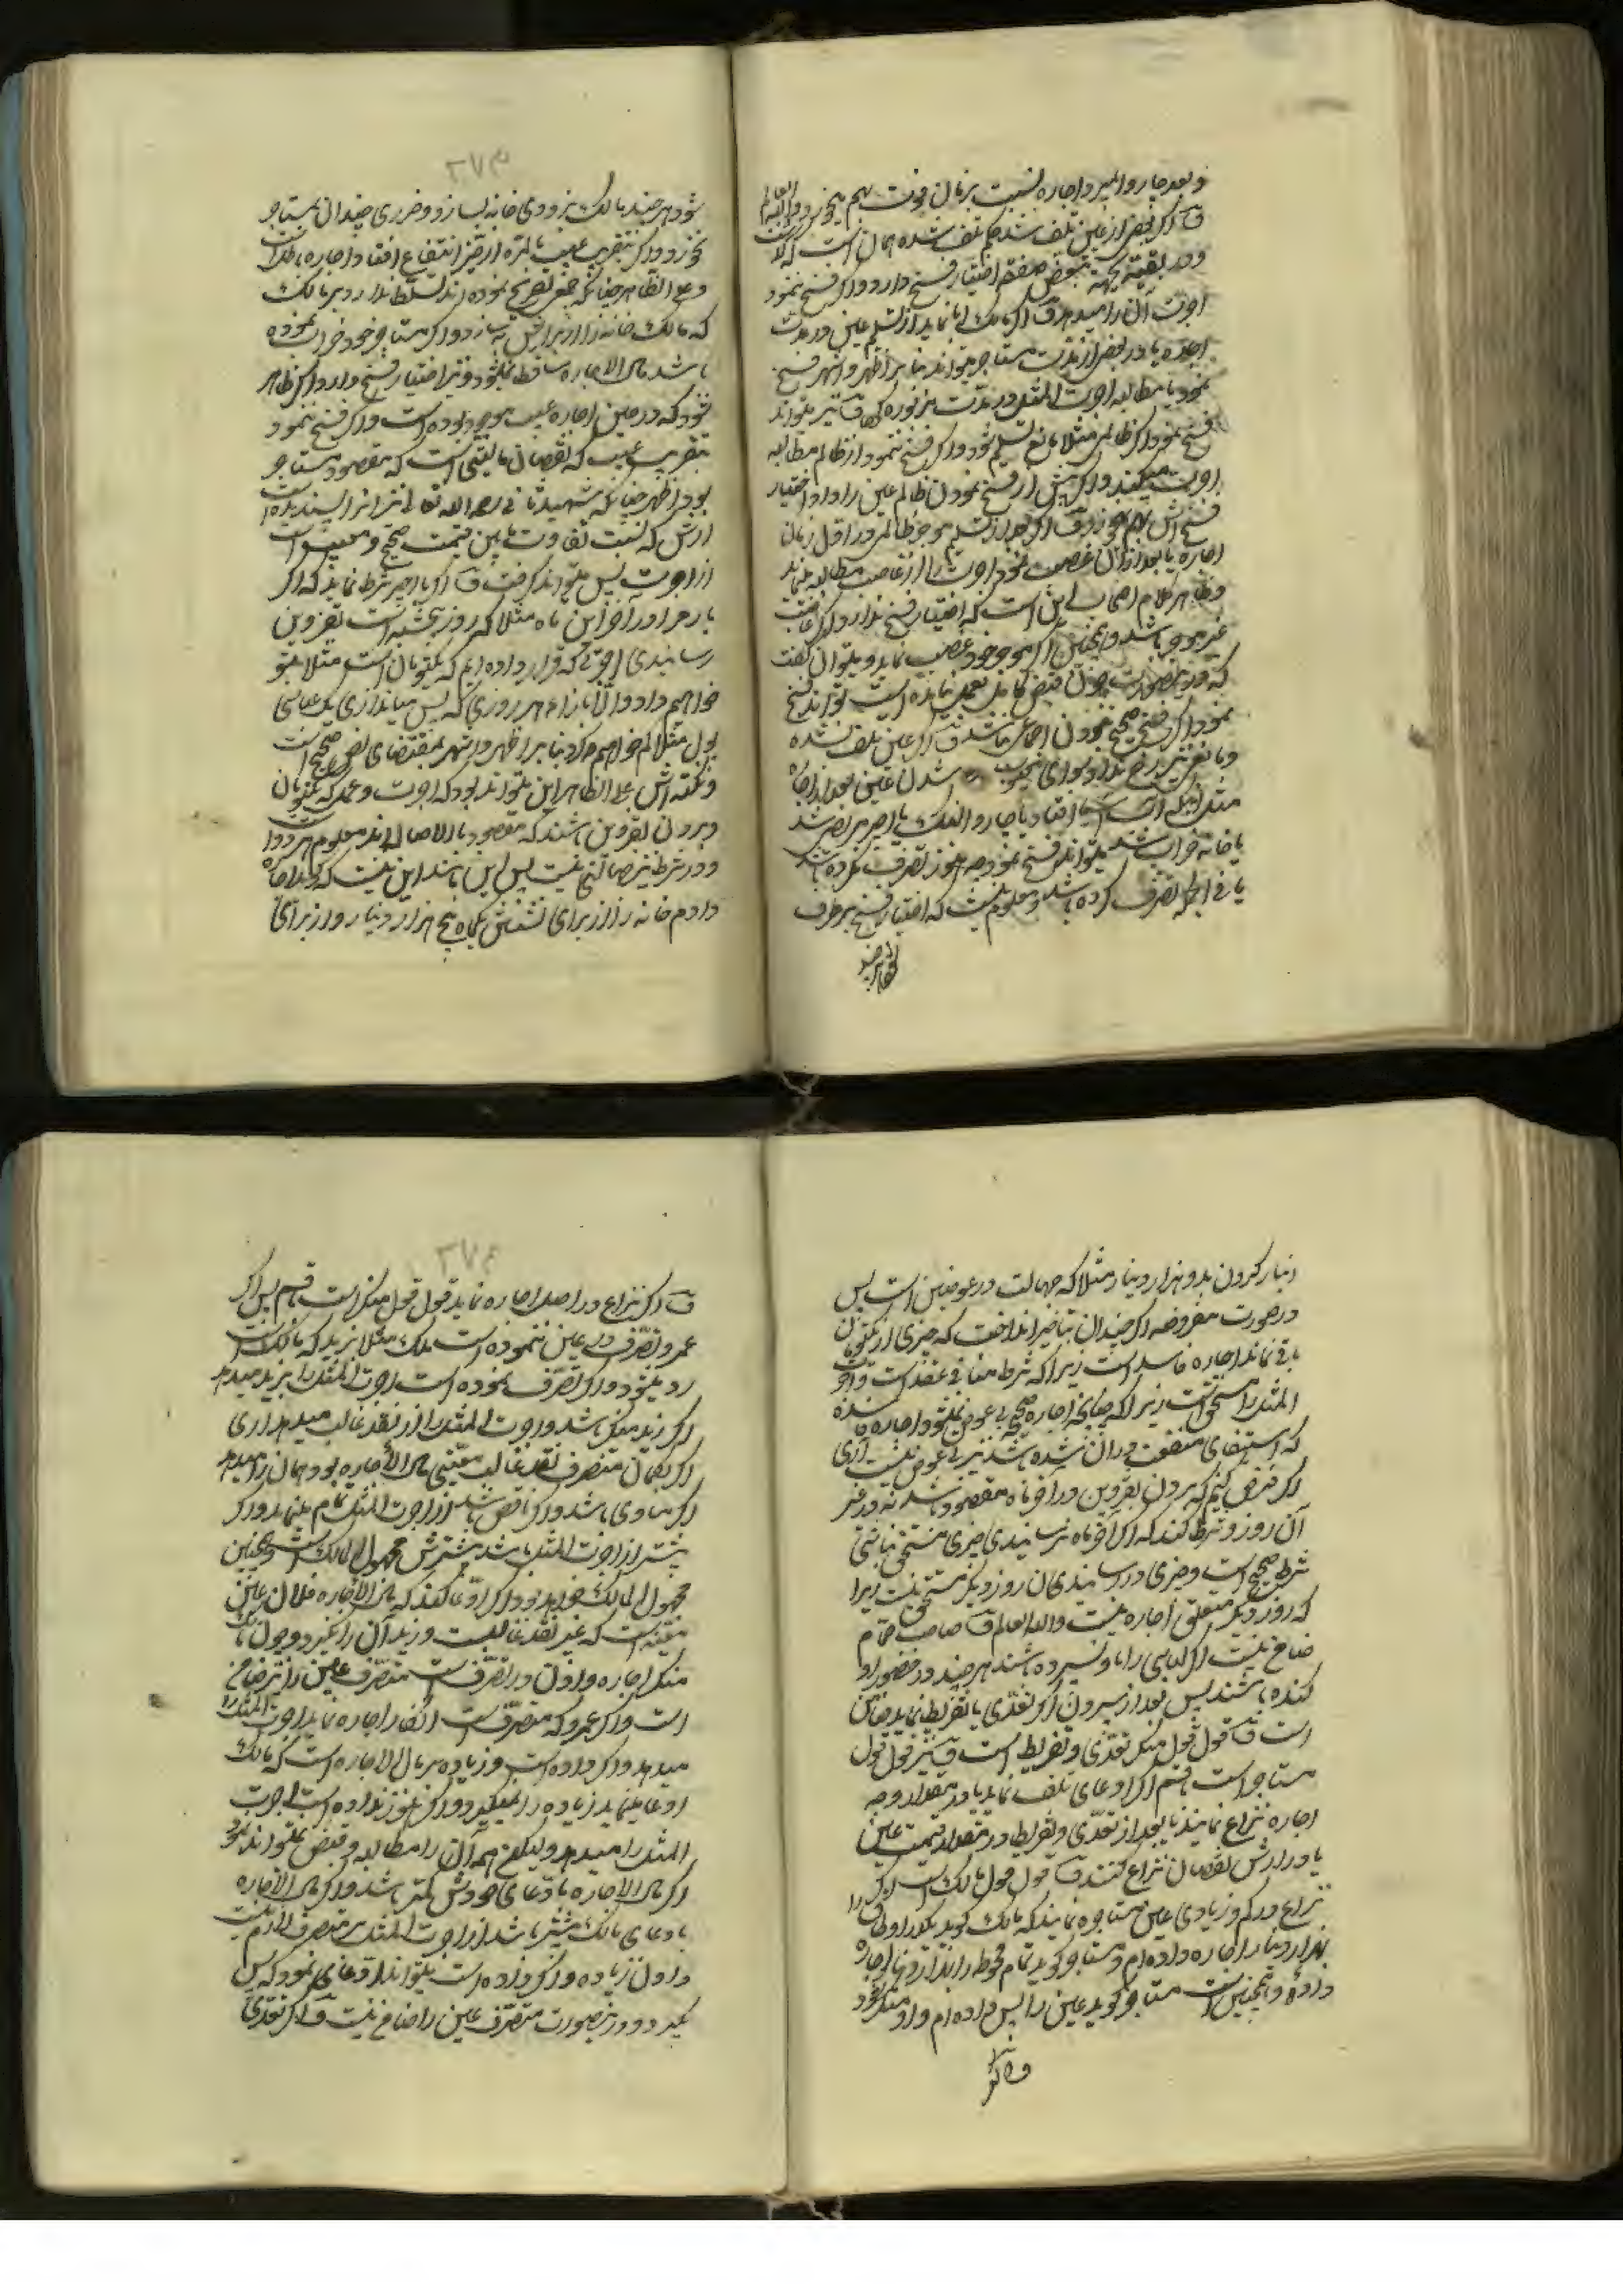 و بعد چاروا بمیرد اجاره نسبت بزمان فوت بهم میخورد والله العالم
ق اگر بعض از عین تلف شد حکم تلف شده همان است که گذشت
و در بقیه بجهة تبعض صفقه اختیار فسخ دارد و اگر فسخ ننمود
اجرت آن را میدهد ق اگر مالک ابا نماید از تسلیم عین در مدت
اجاره یا در بعض از مدت مستاجر میتواند بنا بر اظهر و اشهر فسخ
نمود یا مطالبه اجرت المثل در مدت مزبوره کرد ق نیز میتواند
فسخ نمود اگر ظالمی مثلا مانع تسلیم شود و اگر فسخ ننمود از ظالم مطالبه
اجرت میکند و اگر پیش از فسخ نمودن ظالم عین را داد اختیار
فسخ اش بهم میخورد ق اگر بعد از تسلیم موجر ظالمی در اول زمان
اجاره یا بعد از آن غصب نمود اجرت را از غاصب مطالبه مینماید
و ظاهر کلام اصحاب این است که اختیار فسخ ندارد اگر غاصب
غیر موجر باشد و همچنین اگر موجر خود غصب نماید و میتوان گفت
که در این صورت چون قبض کامل بعمل نیامده است تواند فسخ
نمود اگر فسخ صحیح نمودن اجماعی نباشد ق اگر عین تلف نشده
و مانعی نیز رخ نداد سوای معیوب شدن عین بعد از اجاره
مثل اینکه آسیا از آب افتاد یا چاروا لنگ یا اجیر مریض شد
یا خانه خراب شد میتواند فسخ نمود چه هنوز تصرف نکرده باشد
یا فی الجمله تصرف کرده باشد و معلوم نیست که اختیار فسخ برطرف
شود هر چند مالک بزودی خانه بسازد و ضرری چندان بمستاجر
نخورد و اگر بتقریب عیب بالمره از حیز انتفاع افتاد اجاره باطلست
و علی الظاهر چنانکه جمعی تصریح نموده اند تسلط ندارد بر مالک
که مالک خانه را از برایش بسازد و اگر مستاجر خود خراب نموده
باشد مال الاجاره ساقط نمیشود و نیز اختیار فسخ دارد اگر ظاهر
شود که در حین اجاره عیب موجود بوده است و اگر فسخ ننمود
بتقریب عیب که نقصان مالیتی است که مقصود مستاجر
بود اظهر چنانکه شهید ثانی رحمه الله تعالی نیز آنرا پسندیده است
ارش که نسبت تفاوت مابین قیمت صحیح و معیب است
از اجرت پس میتواند گرفت ق اگر با اجیر شرط نماید که اگر
بار مرا در آخر این ماه مثلا که روز پنجشنبه است بقزوین
رسانیدی اجرتی که قرار داده ایم که یکتومان است مثلا بتو
خواهم داد و الا بازاء هر روزی که پس میاندازی یک عباسی
پول مثلا کم خواهم کرد بنا بر اظهر و اشهر بمقتضای نص صحیح است
و نکته اش علی الظاهر این میتواند بود که اجرت و عمل که یکتومان
و بردن بقزوین باشند که مقصود بالاصاله اند معلوم هر دو است
و در شرط نیز جهالتی نیست پس این مانند این نیست که اجاره
دادم خانه را از برای نشستن یکماه پنج هزار دینار و از برای
دنبار کردن بدو هزار دینار مثلا که جهالت در عوضین است پس
در صورت مفروضه اگر چندان بتاخیر انداخت که چیزی از یکتومان
باقی نماند اجاره فاسد است زیرا که شرط منافی عقد است و اجرت
المثل را مستحق است زیرا که چنانچه اجاره صحیح بی عوض نمیشود اجاره فاسده
که استیفای منفعت در آن شده باشد نیز بی عوض نیست آری
اگر فرض کنیم که بردن بقزوین در آخر ماه مقصود باشد نه در غیر
آن روز و شرط کند که اگر آخر ماه نرسانیدی چیزی مستحق نباشی
شرط صحیح است و چیزی در رسانیدن آن روز دیگر مستحق نیست زیرا
که روز دیگر متعلق اجاره نیست والله العالم ق صاحب حمام
ضامن نیست اگر لباسی را باو نسپرده باشند هر چند در حضور او
کنده باشند پس بعد از سپردن اگر تعدی یا تفریط نماید ضامن
است ق قول قول منکر تعدی و تفریط است ق نیز قول قول
مستاجر است بقسم اگر ادعای تلف نماید یا در مقدار وجه
اجاره نزاع نمایند یا بعد از تعدی و تفریط در مقدار قیمت عین
یا در ارش نقصان نزاع کنند ق قول قول مالک است اگر
نزاع در کم و زیادی عین مستاجره نمایند که مالک گوید یکدر اوطاق را
بهزار دینار اجاره داده ام و مستاجر گوید تمام محوطه را باندازه اجاره
داده و همچنین است مستاجر گوید عین را پس داده ام و او منکر شود
ق اگر نزاع در اصل اجاره نماید قول قول منکر است با قسم پس اگر
عمرو تصرف در عین ننموده است ملک مثلا بزید که مالک است
رد میشود و اگر تصرف نموده است اجرت المثل را بزید میدهد
اگر زید منکر باشد و اجرت المثل را از نقد غالب میدهد آری
اگر بگمان متصرف نقد غالب معینی مال الاجاره بود همان را میدهد
اگر مساوی باشد و اگر ناقص باشد از اجرت المثل تمام مینماید و اگر
بیشتر از اجرت المثل باشد بیشترش مجهول المالک است و همچنین
مجهول المالک خواهد بود اگر ادعا کند که مال الاجاره فلان عین
معینه است که غیر نقد غالبست و زید آن را نگیرد و چون مالک
منکر اجاره و اذن در تصرف است متصرف عین را نیز ضامن
است و اگر عمرو که متصرف است انکار اجاره نماید اجرت المثل را
میدهد و اگر داده است و زیاده بر مال الاجاره است که مالک
ادعا مینماید زیاده را نمیگیرد و اگر هنوز نداده است اجرت
المثل را میدهد و لیکن همه آن را مطالبه و قبض نمیتواند نمود
اگر مال الاجاره بادعای خودش کمتر باشد و اگر مال الاجاره
بادعای مالک بیشتر باشد از اجرت المثل بر متصرف لازم نیست
دادن زیاده و اگر داده است میتواند ادعای نمود که پس
بگیرد و در اینصورت متصرف عین را ضامن نیست ق اگر تعدی